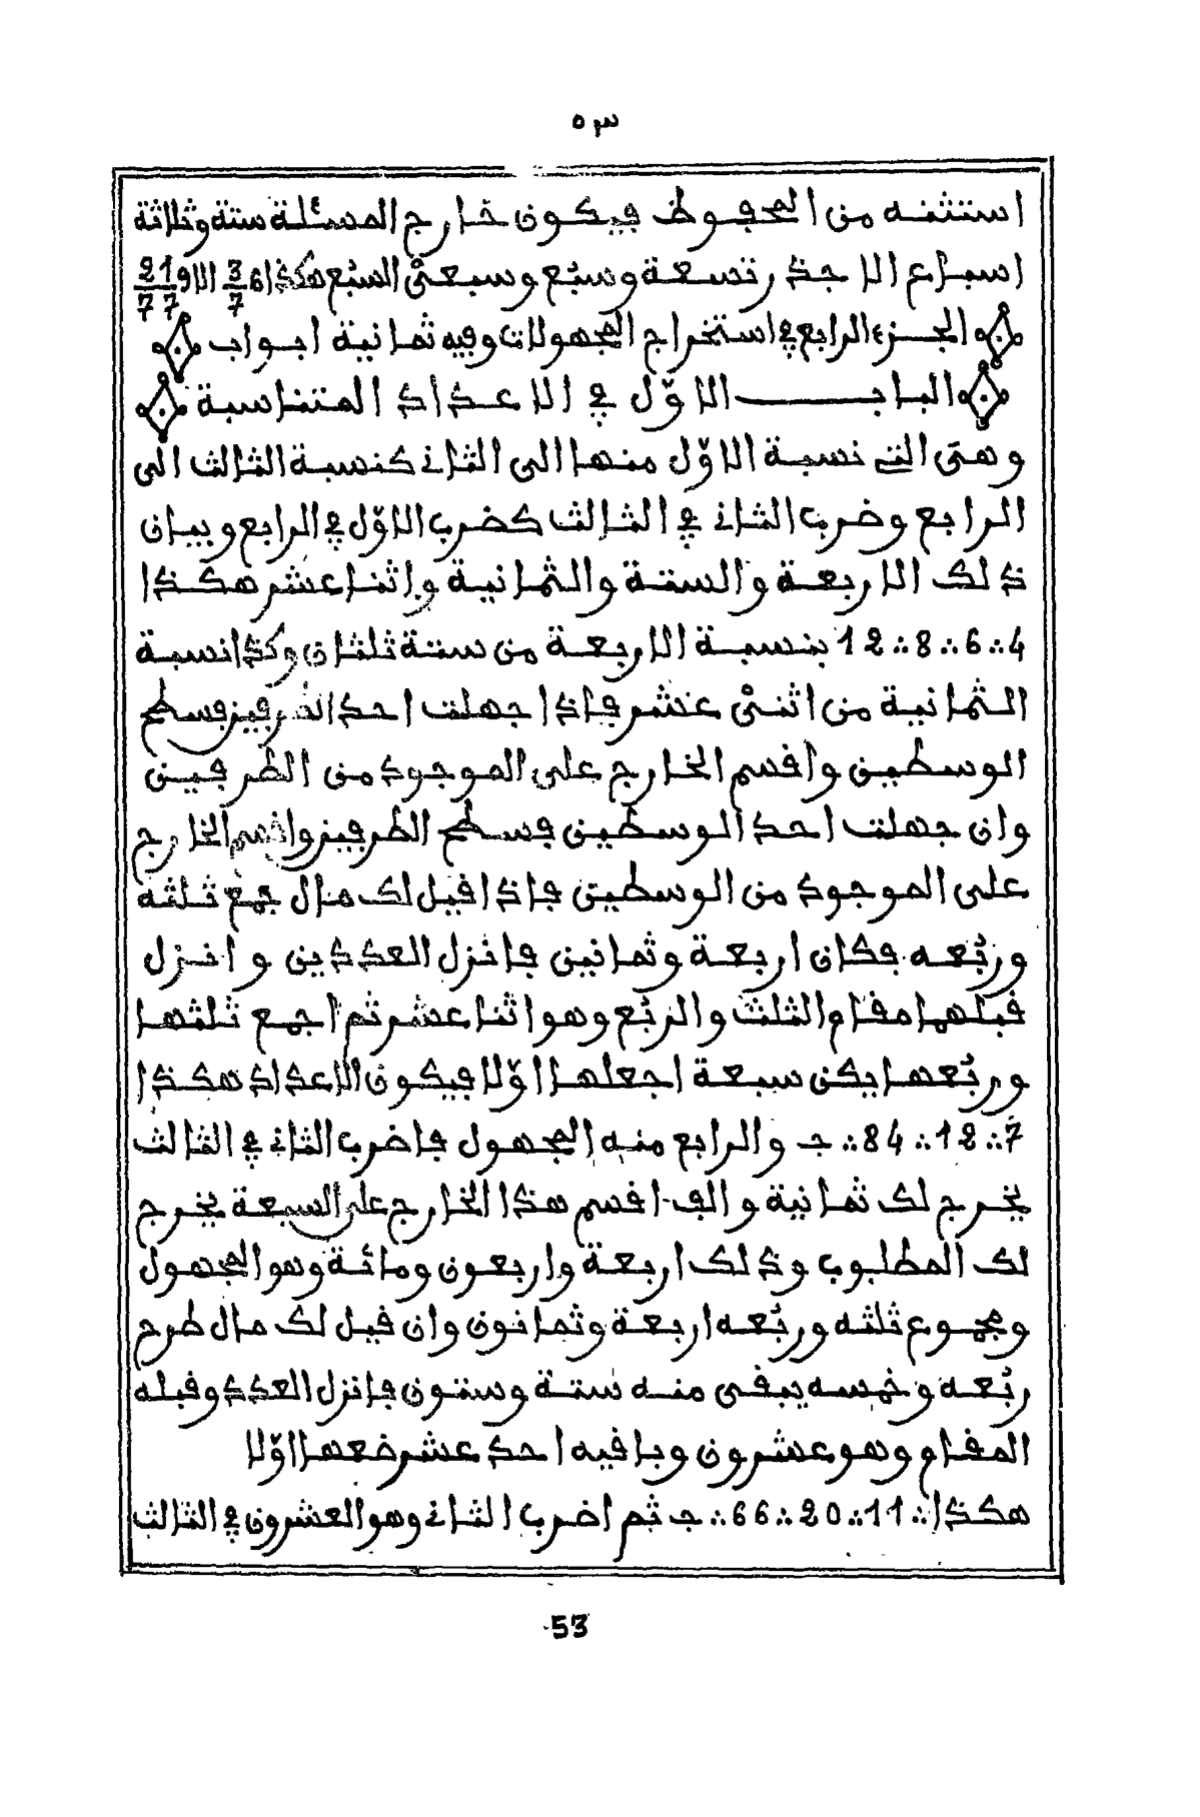 ٥٣
استثنه من المحفوظ فيكون خارج المسئلة ستة وثلاثة
اسباع الا جذر تسعة وسبُع وسبعي السبُع هكذا 6 3/7 الا 9 21/77
الجزء الرابع في استخراج المجهولات وفيه ثمانية ابواب
الباب الاوّل في الاعداد المتناسبة
وهي التي نسبة الاوّل منها الى الثاني كنسبة الثالث الى
الرابع وضرب الثاني في الثالث كضرب الاوّل في الرابع وبيان
ذلك الاربعة والستة والثمانية واثنا عشر هكذا
4 ∴ 6 ∴ 8 ∴ 12 فنسبة الاربعة من ستة ثلثان وكذا نسبة
الثمانية من اثني عشر فاذا جهلت احد الطرفين فسطح
الوسطين واقسم الخارج على الموجود من الطرفين
وان جهلت احد الوسطين فسطح الطرفين واقسم الخارج
على الموجود من الوسطين فاذا قيل لك مال جمع ثلثه
وربُعه فكان اربعة وثمانين فانزل العددين وانزل
قبلهما مقام الثلث والربُع وهو اثنا عشر ثم اجمع ثلثها
وربُعها يكن سبعة اجعلها اوّلا فيكون الاعداد هكذا
7 ∴ 12 ∴ 84 ∴ ج والرابع منه المجهول فاضرب الثاني في الثالث
يخرج لك ثمانية والف اقسم هذا الخارج على السبعة يخرج
لك المطلوب وذلك اربعة واربعون ومائة وهو المجهول
ومجموع ثلثه وربُعه اربعة وثمانون وان قيل لك مال طرح
ربُعه وخمسه يبقى منه ستة وستون فانزل العدد وقبله
المقام وهو عشرون وباقيه احد عشر ضعها اوّلا
هكذا ∴ 11 ∴ 20 ∴ 66 ∴ ج ثم اضرب الثاني وهو العشرون في الثالث
53